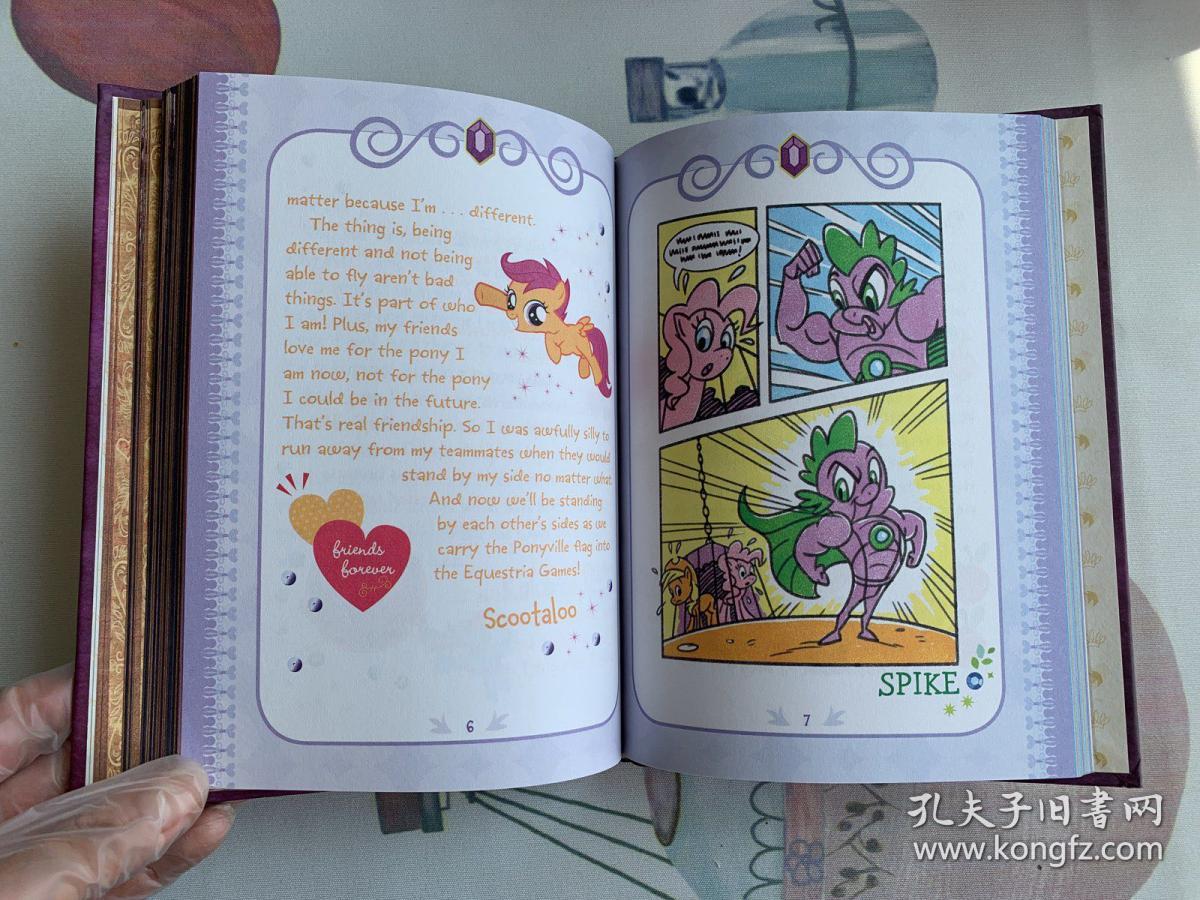 matter because I'm . . . different.
The thing is, being
different and not being
able to fly aren't bad
things. It's part of who
I am! Plus, my friends
love me for the pony I
am now, not for the pony
I could be in the future.
That's real friendship. So I was awfully silly to
run away from my teammates when they would
stand by my side no matter what.
And now we'll be standing
by each other's sides as we
carry the Ponyville flag into
the Equestria Games!
Scootaloo
friends
forever
6
SPIKE
7
孔夫子旧書网
www.kongfz.com